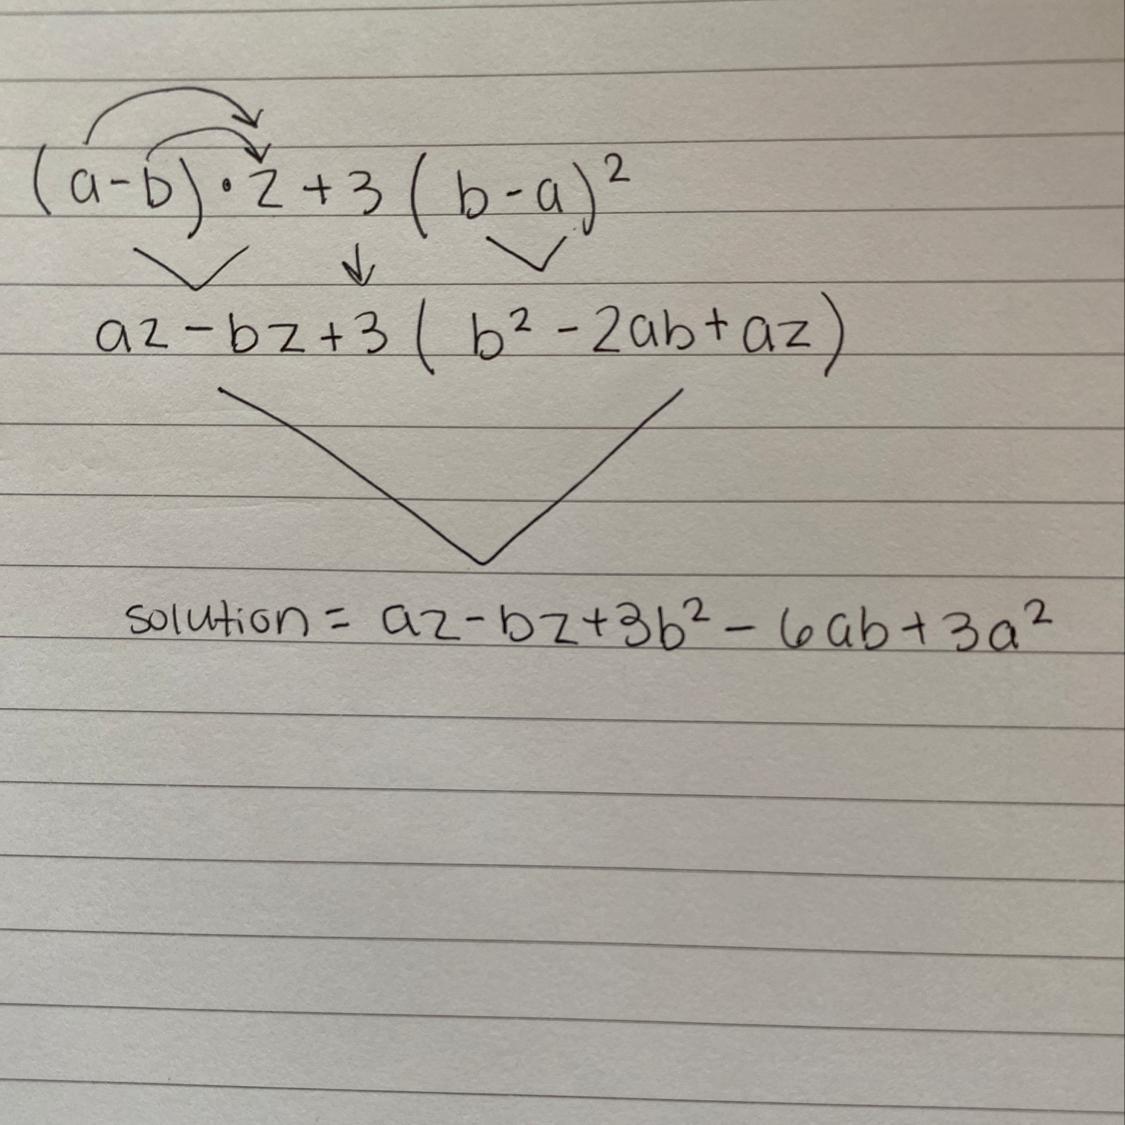 (a-b)·z+3(b-a)²
az-bz+3(b²-2ab+az)
solution = az-bz+3b²-6ab+3a²